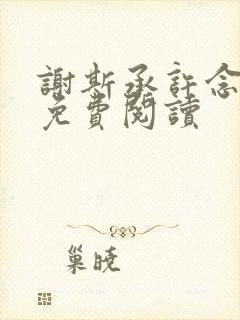 謝斯承許念
免費閱讀
巢曉